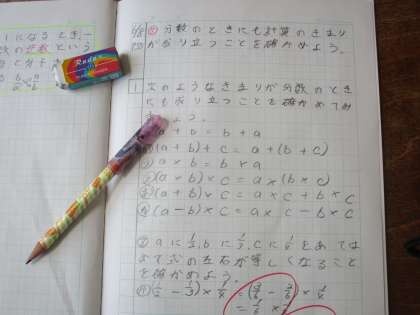 になるとき、
数の逆数という
Radar
5/8
め 分数のときにも計算のきまり
が成り立つことを確かめよう。
1 次のようなきまりが分数のとき
にも成り立つことを確かめてみ
ましょう。
a + b = b + a
(a + b) + c = a + (b + c)
a × b = b × a
(a × b) × c = a × (b × c)
(a + b) × c = a × c + b × c
(a − b) × c = a × c − b × c
② aに1/2、bに1/3、cに1/4をあては
めて式の左右が等しくなること
を確かめよう。
(1/2 − 1/3) × 1/4 = (3/6 − 2/6) × 1/4
= 1/6 × 1/4